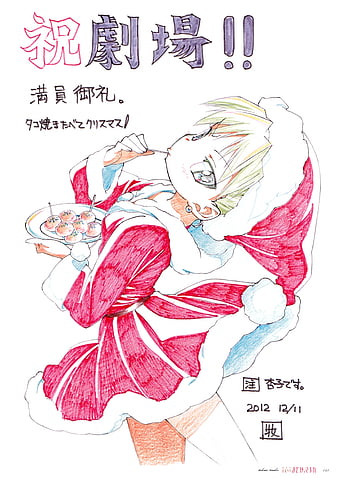 祝劇場!!
満員御礼。
タコ焼きたべてクリスマス!
注 杏子です。
2012 12/11
牧